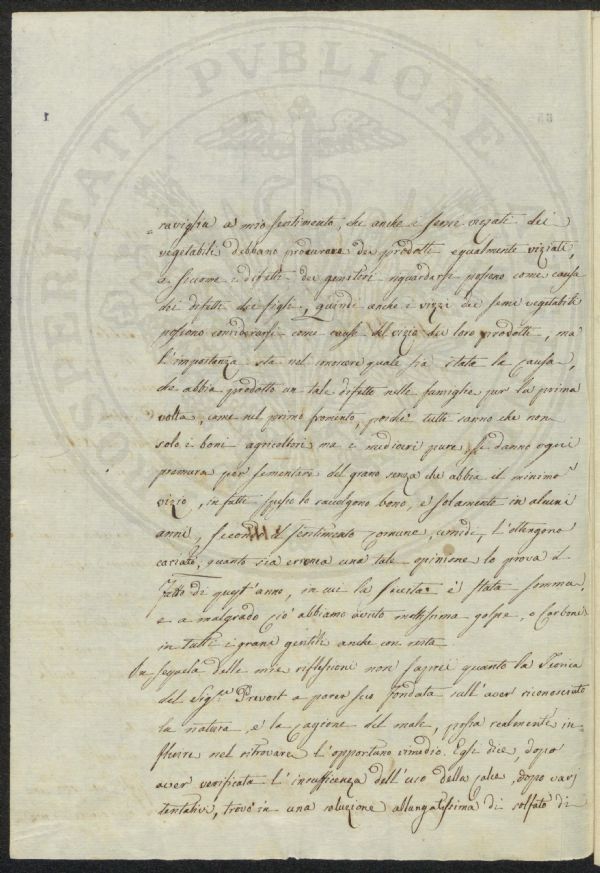 POSTERITATI PVBLICAE
1
=raviglia a mio sentimento, che anche i semi viziati dei
vegetabili debbano procurare dei prodotti egualmente viziati,
e siccome i difetti dei genitori riguardarsi possono come causa
dei difetti dei figli, quindi anche i vizzi dei semi vegetabili
possono considerarsi come causa del vizio dei loro prodotti, ma
l'importanza sta nel conoscere quale sia stata la causa,
che abbia prodotto un tale difetto nelle famiglie per la prima
volta, come nel primo fromento, poiché tutti sanno che non
solo i boni agricoltori ma i mediocri pure, si danno ogni
premura per sementare del grano senza che abbia il minimo
vizio, in fatti spesso lo raccolgono bono, e solamente in alcuni
anni, secondo il sentimento comune, umidi, l'ottengono
cariato; quanto sia erronea una tale opinione lo prova il
fatto di quest'anno, in cui la siccità è stata somma,
e a malgrado ciò abbiamo avuto moltissima golpe, o Carbone
in tutti i grani gentili anche con resta
In sequela delle mie riflessioni non saprei quanto la Teorica
del Sig.r Prevost a parer suo fondata sull'aver riconosciuto
la natura, e la cagione del male, possa realmente in=
fluire nel ritrovare l'opportuno rimedio. Egli dice, dopo
aver verificata l'insufficenza dell'uso della calce, dopo varj
tentativi, trovò in una soluzione allungatissima di solfato di